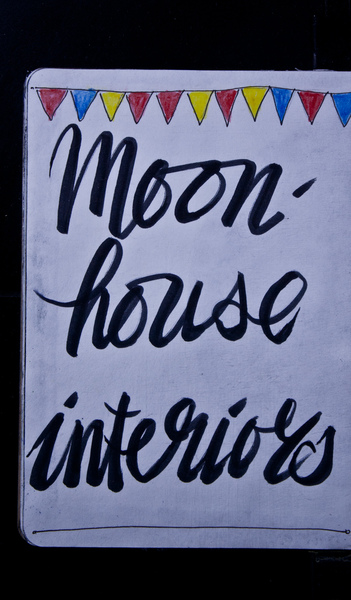 Moon-
house
interiors